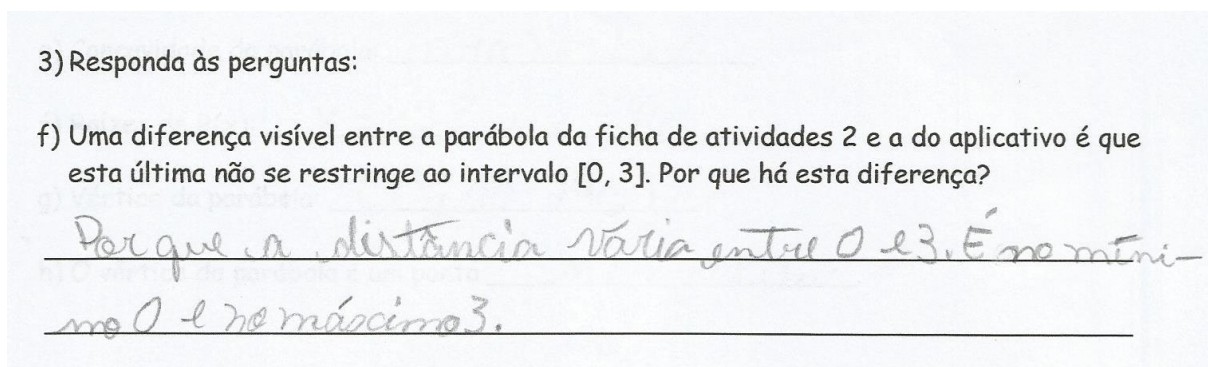 3) Responda às perguntas:
f) Uma diferença visível entre a parábola da ficha de atividades 2 e a do aplicativo é que
esta última não se restringe ao intervalo [0, 3]. Por que há esta diferença?
Porque a distância varia entre 0 e 3. É no míni-
mo 0 e no máximo 3.